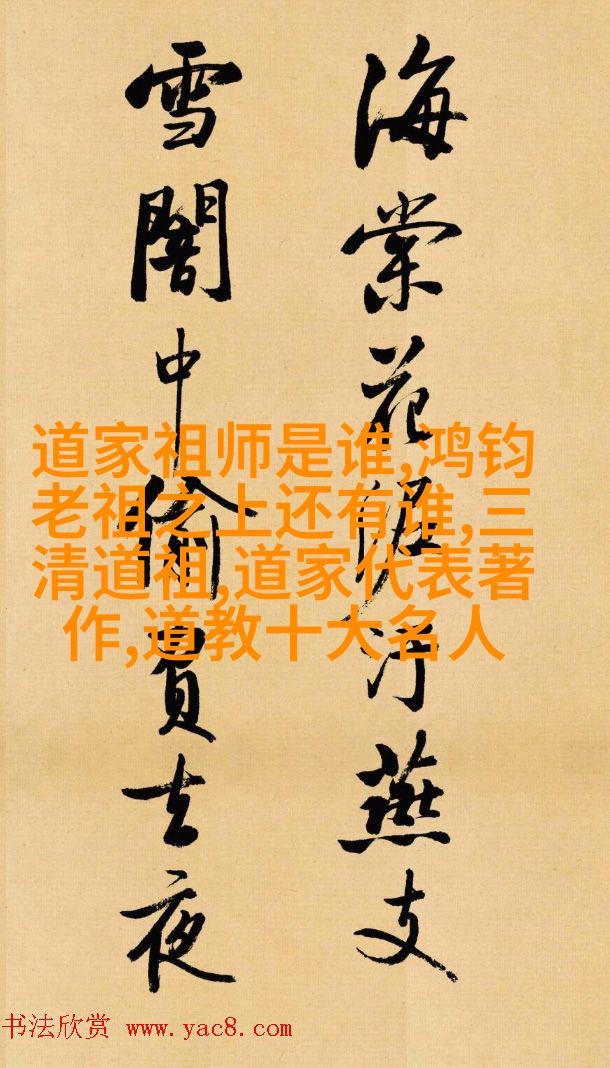 海棠花泥汙燕支
雪闇中偷負去夜
道家祖师是谁,鸿钧
老祖之上还有谁,三
清道祖,道家代表著
作,道教十大名人
书法欣赏 www.yac8.com